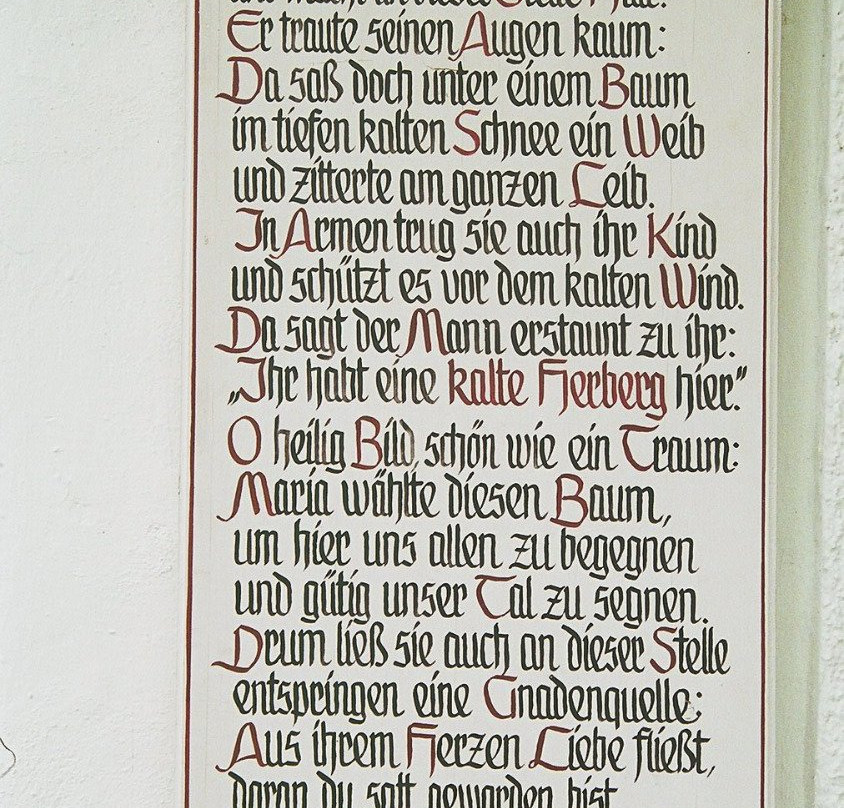 und macht an dieser Stelle Halt.
Er traute seinen Augen kaum:
Da saß doch unter einem Baum
im tiefen kalten Schnee ein Weib
und zitterte am ganzen Leib.
In Armen trug sie auch ihr Kind
und schützt es vor dem kalten Wind.
Da sagt der Mann erstaunt zu ihr:
„Ihr habt eine kalte Herberg hier.”
O heilig Bild, schön wie ein Traum:
Maria wählte diesen Baum,
um hier uns allen zu begegnen
und gütig unser Tal zu segnen.
Drum ließ sie auch an dieser Stelle
entspringen eine Gnadenquelle;
Aus ihrem Herzen Liebe fließt,
daran du satt geworden bist